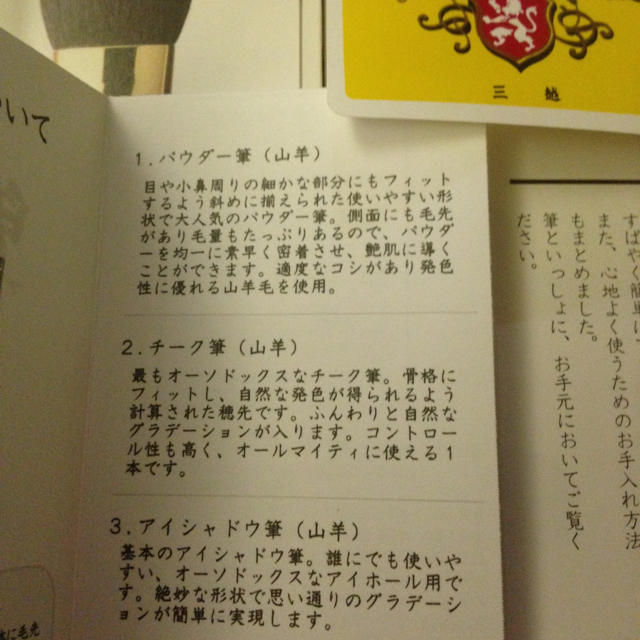 いて
三越
1.パウダー筆(山羊)
目や小鼻周りの細かな部分にもフィット
するよう斜めに揃えられた使いやすい形
状で大人気のパウダー筆。側面にも毛先
があり毛量もたっぷりあるので、パウダ
ーを均一に素早く密着させ、艶肌に導く
ことができます。適度なコシがあり発色
性に優れる山羊毛を使用。
2.チーク筆(山羊)
最もオーソドックスなチーク筆。骨格に
フィットし、自然な発色が得られるよう
計算された穂先です。ふんわりと自然な
グラデーションが入ります。コントロー
ル性も高く、オールマイティに使える1
本です。
3.アイシャドウ筆(山羊)
基本のアイシャドウ筆。誰にでも使いや
すい、オーソドックスなアイホール用で
す。絶妙な形状で思い通りのグラデーシ
ョンが簡単に実現します。
すばやく簡単に、
また、心地よく使うためのお手入れ方法
もまとめました。
筆といっしょに、お手元においてご覧く
ださい。
に毛先